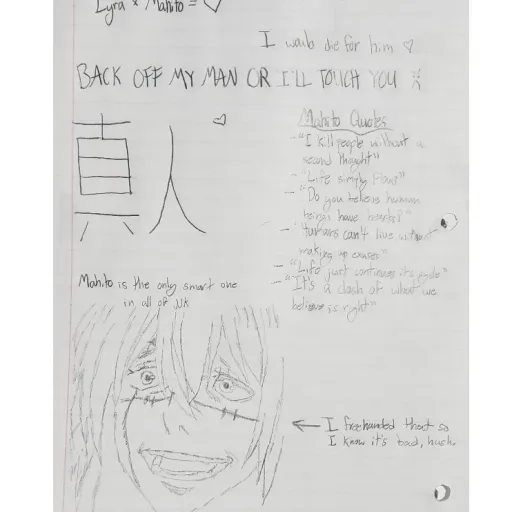 Lyra x Mahito = ♡
I would die for him ♡
BACK OFF MY MAN OR I'LL TOUCH YOU
真人
Mahito Quotes
- "I kill people without a
second thought"
- "Life simply flows"
- "Do you believe human
beings have hearts?"
- "Humans can't live without
making up excuses"
- "Life just continues its cycle"
- "It's a clash of what we
believe is right"
Mahito is the only smart one
in all of JJK
← I freehanded that so
I know it's bad, hush.